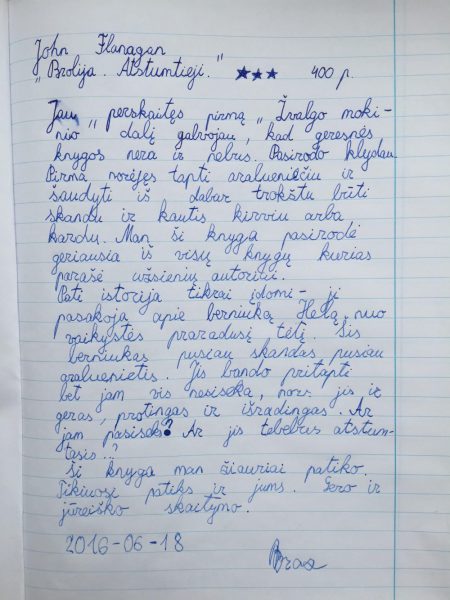 John Flanagan
"Brolija. Atstumtieji." ★★★ 400 p.
Jau perskaitęs pirmą „Žvalgo moki-
nio" dalį galvojau, kad geresnės
knygos nėra ir nebus. Pasirodo klydau.
Pirma norėjęs tapti aralueniečiu ir
šaudyti iš dabar trokštu būti
skandu ir kautis kirviu arba
kardu. Man ši knyga pasirodė
geriausia iš visų knygų kurias
parašė užsienių autoriai.
Pati istorija tikrai įdomi - ji
pasakoja apie berniuką Halą, nuo
vaikystės praradusį tėtį. Šis
berniukas pusiau skandas, pusiau
araluenietis. Jis bando pritapti
bet jam vis nesiseka, nors jis ir
geras, protingas ir išradingas. Ar
jam pasiseks? Ar jis tebebus atstum-
tasis..?
Ši knyga man žiauriai patiko.
Tikiuosi patiks ir jums. Gero ir
jūreiško skaitymo.
2016-06-18